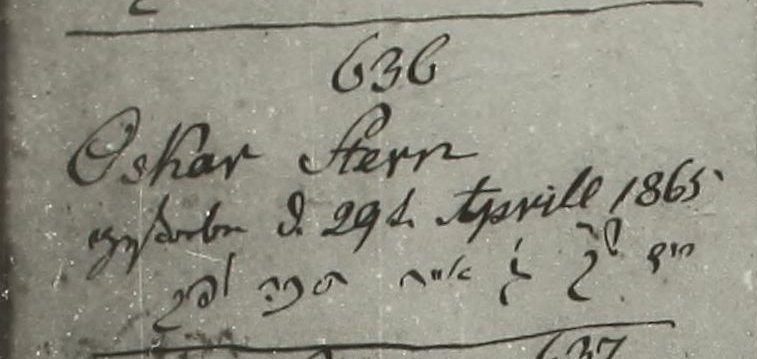 636
Oskar Stern
gestorben d. 29t. Aprill 1865
יום ש"ק ג' אייר תרכה לפק
637